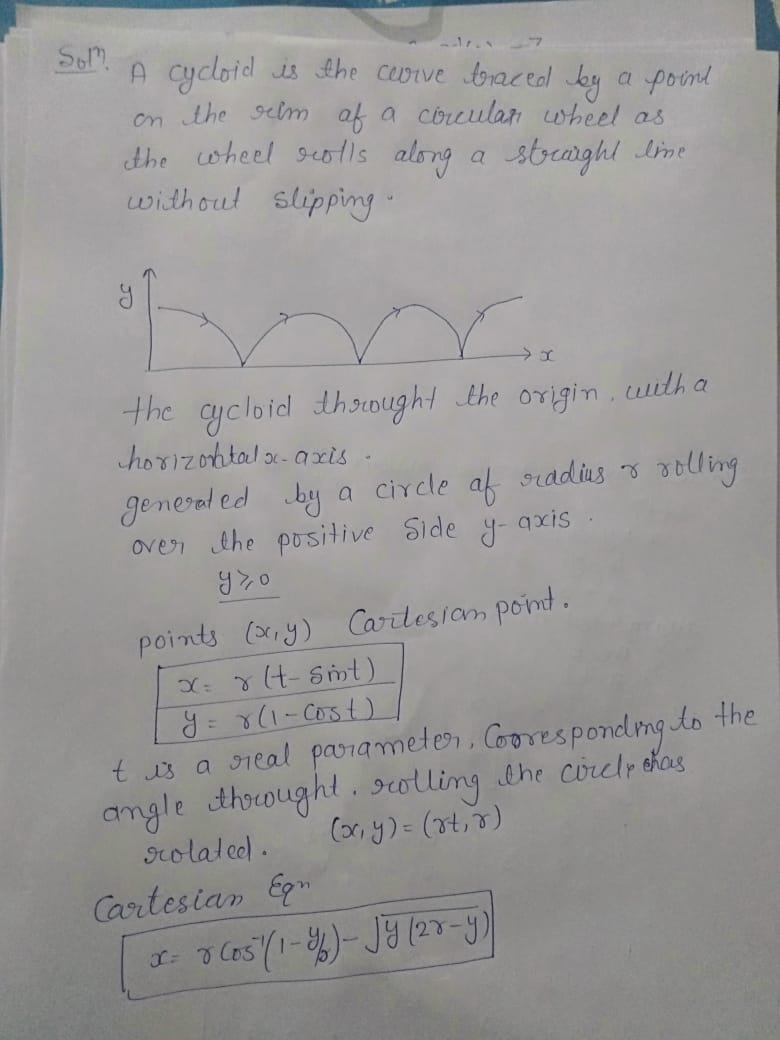 Solⁿ. A cycloid is the curve traced by a point
on the rim of a circular wheel as
the wheel rolls along a straight line
without slipping.
y
x
the cycloid throught the origin, with a
horizontal x-axis.
generated by a circle of radius r rolling
over the positive side y-axis.
y≥0
points (x,y) Cartesian point.
x = r(t - sint)
y = r(1 - cost)
t is a real parameter, Corresponding to the
angle throught. rolling the circle has
rotated. (x,y) = (rt, r)
Cartesian Eqⁿ
x = r cos⁻¹(1 - y/r) - √y(2r-y)